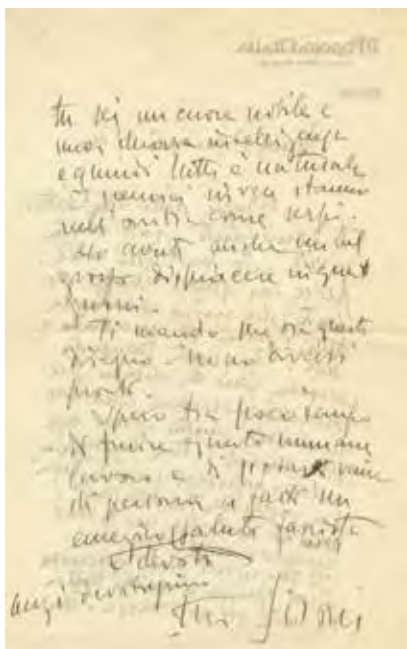 Il Popolo d'Italia
tu sei un cuore nobile e
una chiara intelligenza
e quindi tutto è naturale
I nemici invece stanno
nell'ombra come serpi.
Ho avuto anche un bel
grosso dispiacere in questi
giorni.
Ti mando per ora questo
disegno
pronti.
Spero tra poco tempo
di finire questo immane
lavoro e di potere venire
di persona a farti un
saluto fascista
e devoto
anzi devotissimo
tuo Sironi